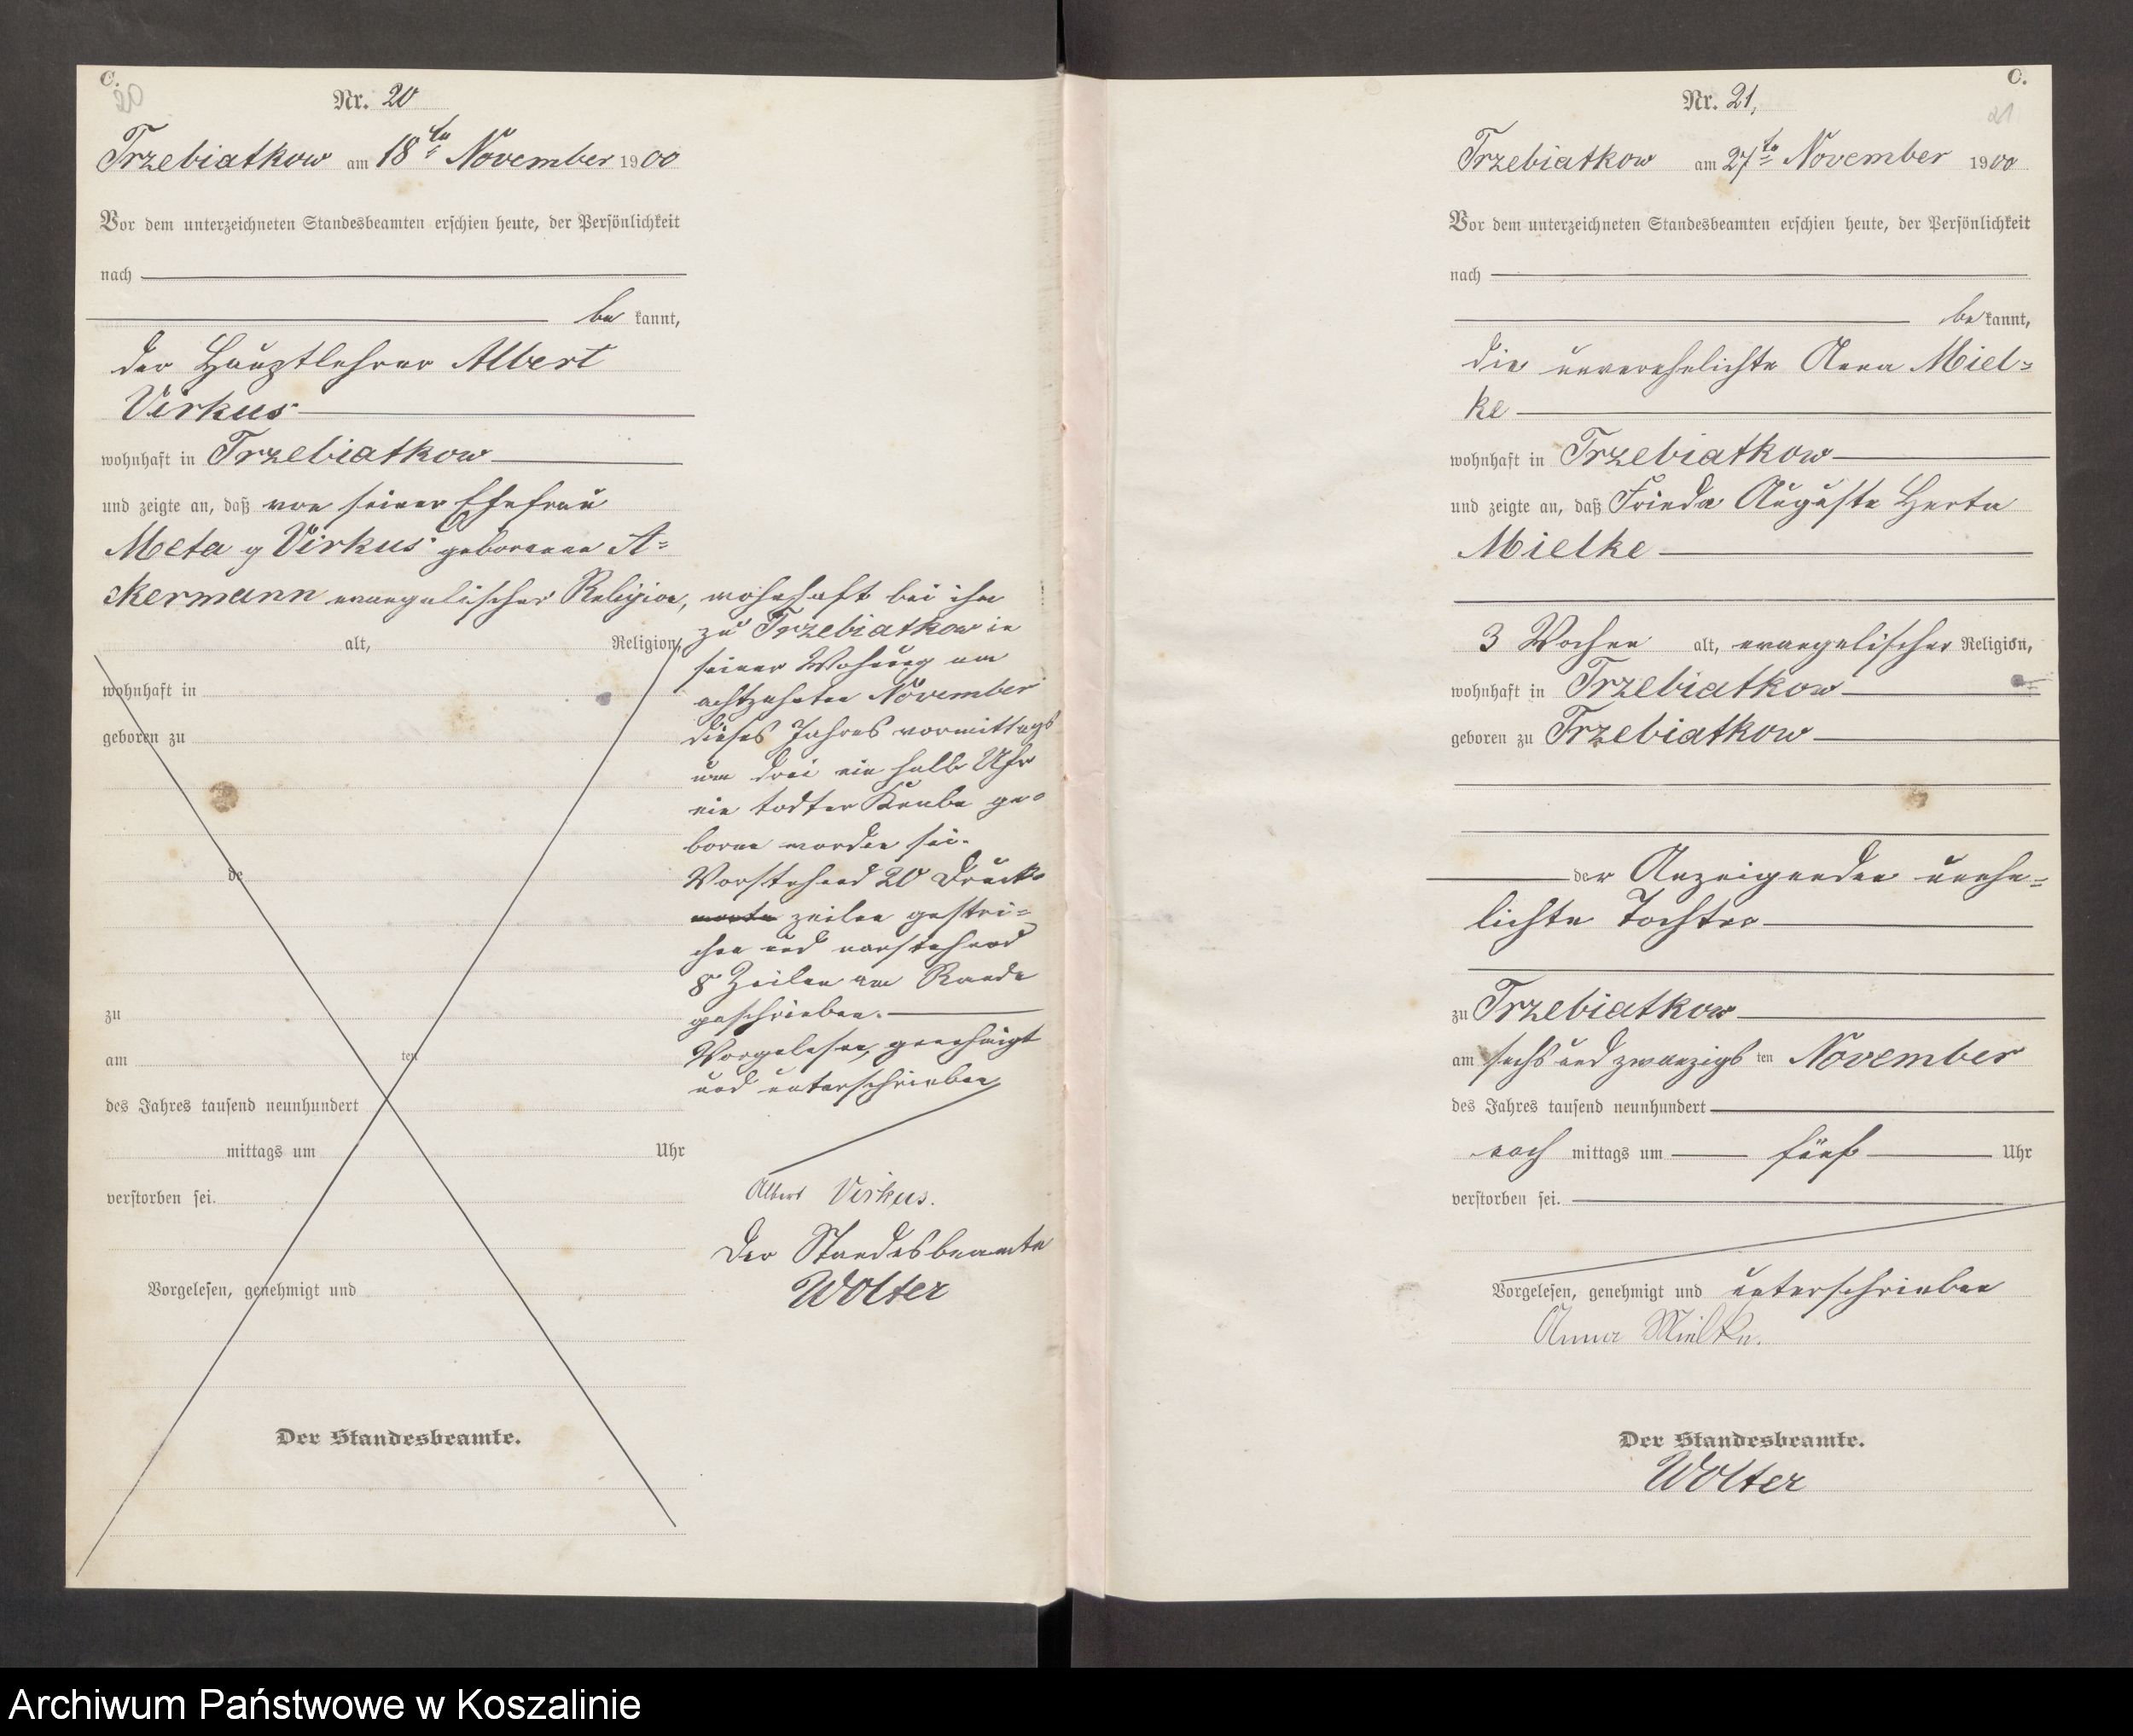 C.
20
Nr. 20
Trzebiatkow am 18ten November 1900
Vor dem unterzeichneten Standesbeamten erschien heute, der Persönlichkeit
nach
be kannt,
der Hauptlehrer Albert
Virkus
wohnhaft in Trzebiatkow
und zeigte an, daß von seiner Ehefrau
Meta Virkus geborenen A=
ckermann evangelischer Religion, wohnhaft bei ihm
alt, Religion,
wohnhaft in
geboren zu
de
zu
am ten
des Jahres tausend neunhundert
mittags um Uhr
verstorben sei.
Vorgelesen, genehmigt und
Der Standesbeamte.
zu Trzebiatkow in
seiner Wohnung am
achtzehnten November
dieses Jahres vormittags
um drei ein halb Uhr
ein todter Knabe ge=
boren worden sei.
Vorstehend 20 Druck=
worte zeilen gestri=
chen und vorstehend
8 Zeilen am Rande
geschrieben.
Vorgelesen, genehmigt
und unterschrieben
Albert Virkus.
Der Standesbeamte
Wolter
C.
21
Nr. 21,
Trzebiatkow am 27ten November 1900
Vor dem unterzeichneten Standesbeamten erschien heute, der Persönlichkeit
nach
be kannt,
die unverehelichte Anna Miel=
ke
wohnhaft in Trzebiatkow
und zeigte an, daß Frieda Auguste Herta
Mielke
3 Wochen alt, evangelischer Religion,
wohnhaft in Trzebiatkow
geboren zu Trzebiatkow
der Anzeigenden unehe=
lichte Tochter
zu Trzebiatkow
am sechs und zwanzigsten November
des Jahres tausend neunhundert
nach mittags um fünf Uhr
verstorben sei.
Vorgelesen, genehmigt und unterschrieben
Anna Mielke.
Der Standesbeamte.
Wolter
Archiwum Państwowe w Koszalinie